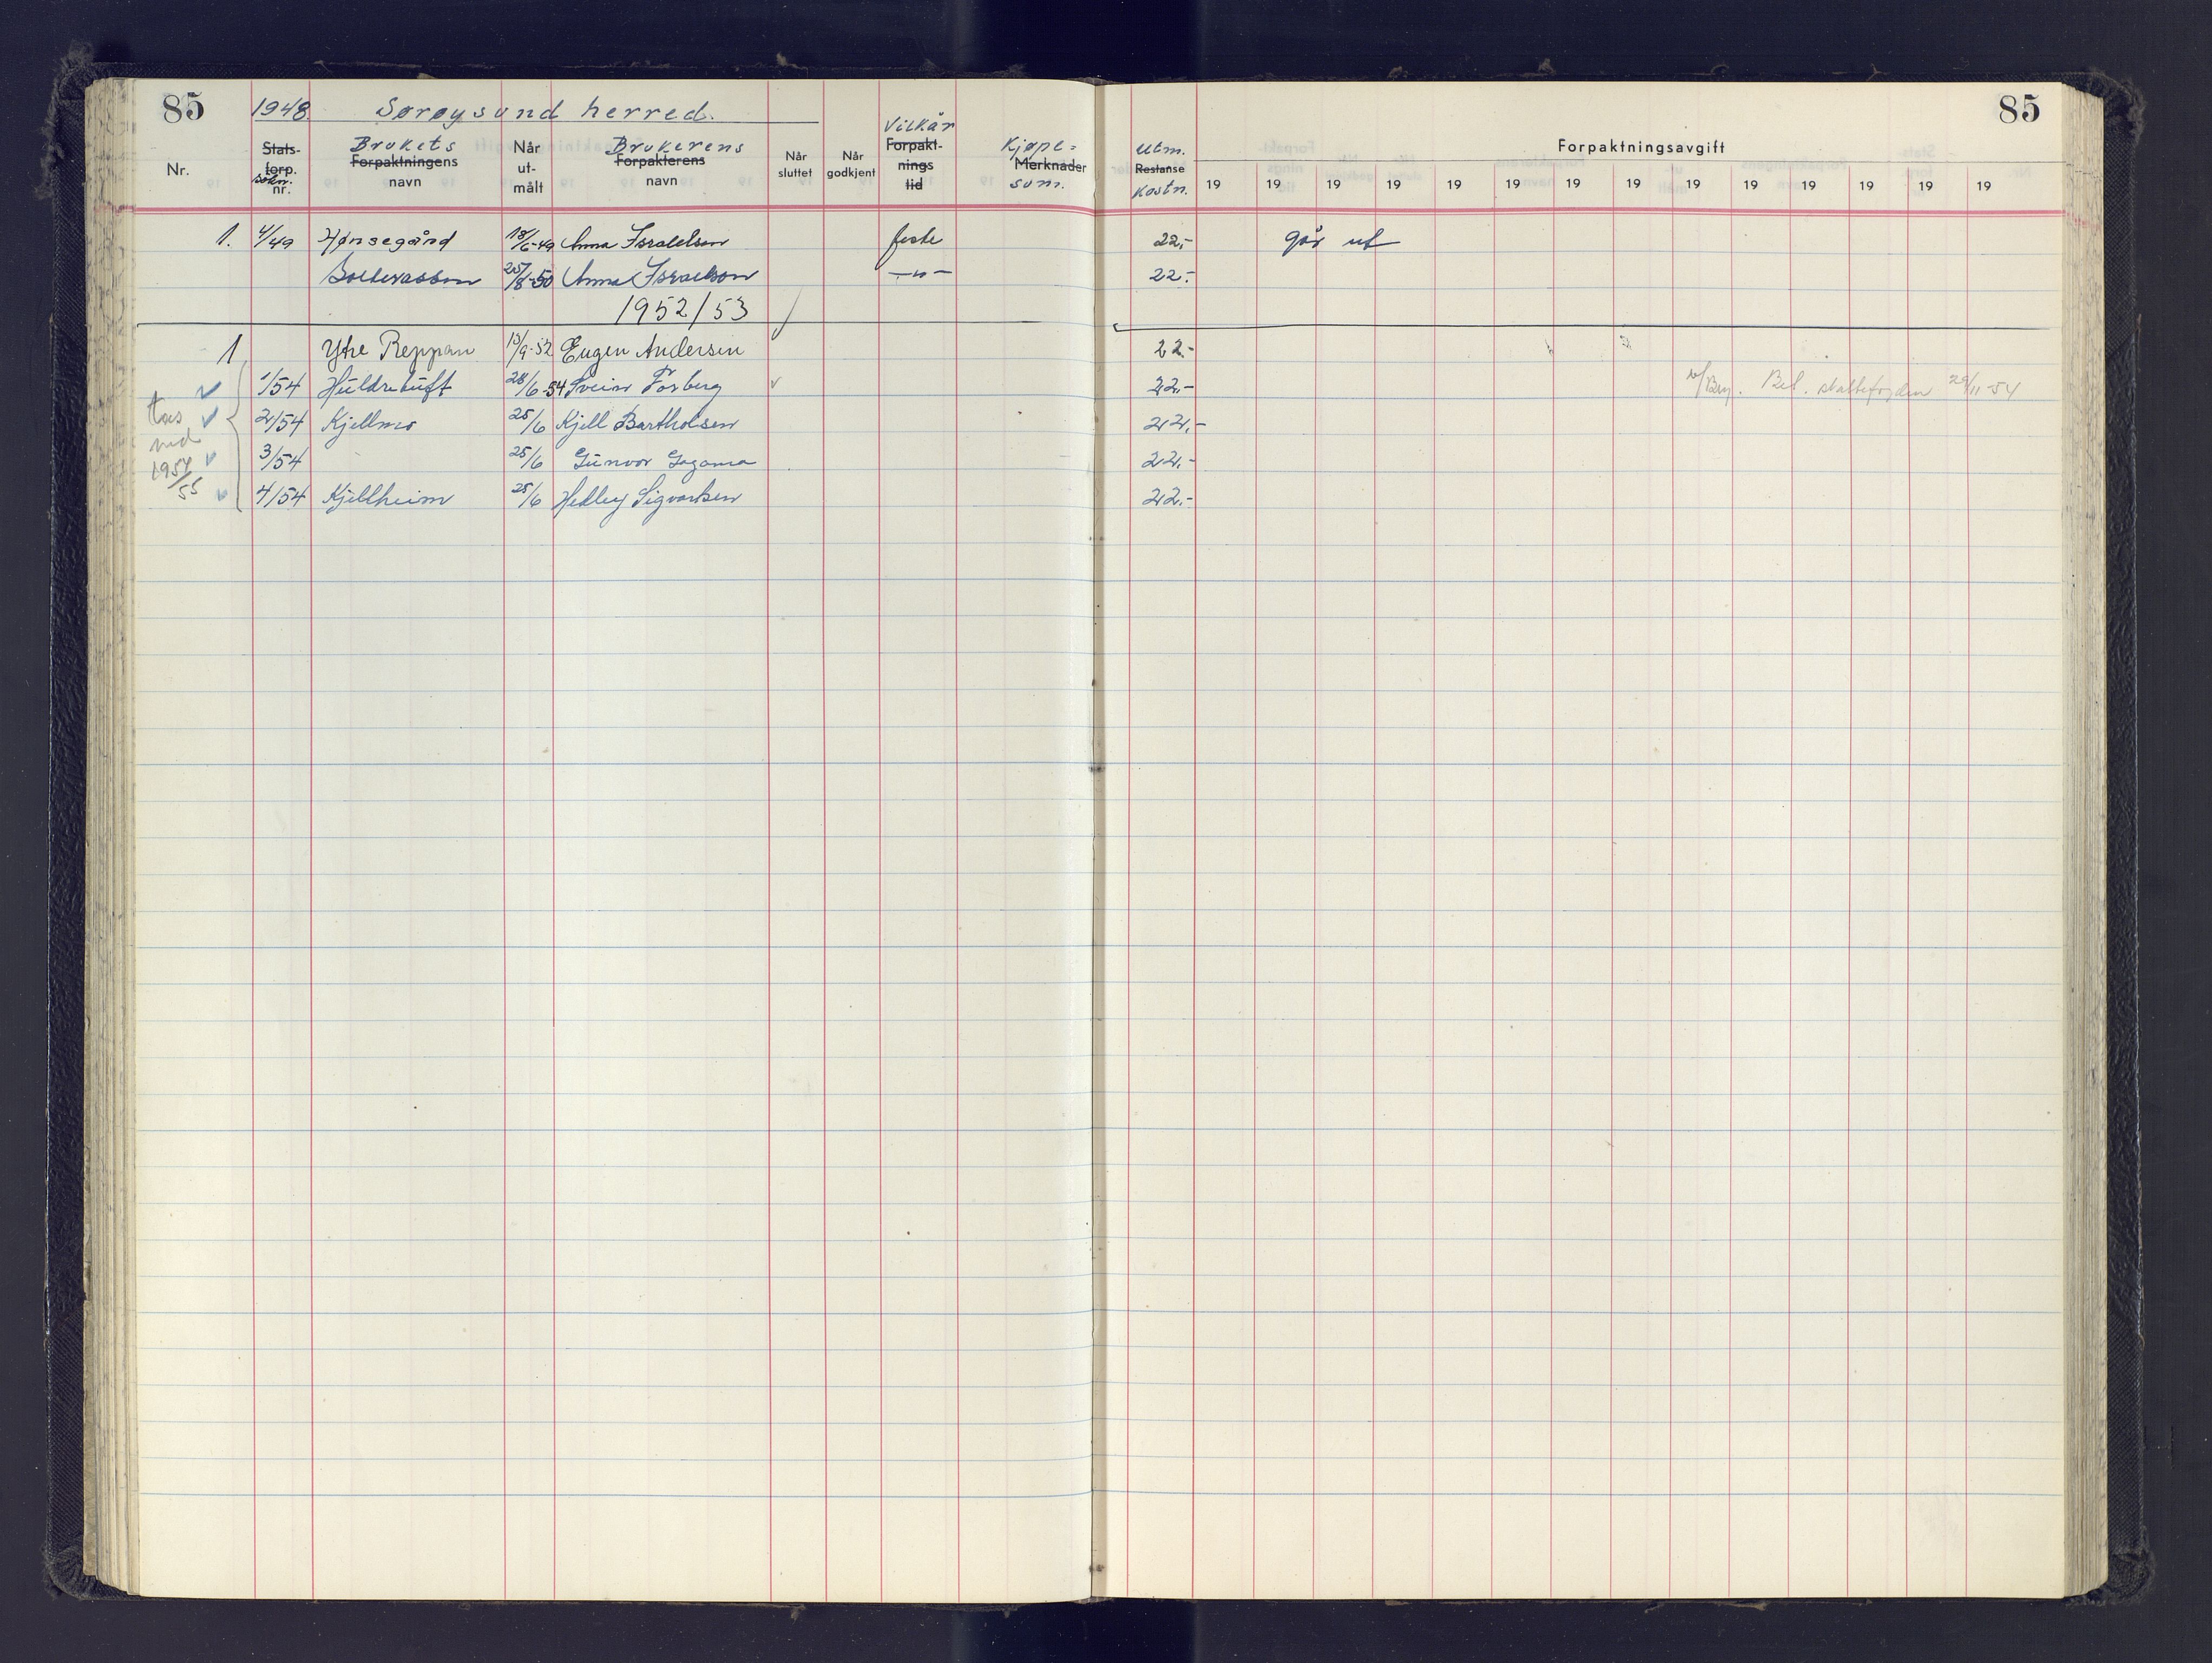 85 1948. Sørøysund herred. 85
Nr. Stats-forp. søkn. nr. Brukets Forpaktningens navn Når ut-målt Brukerens Forpakterens navn Når sluttet Når godkjent Vilkår Forpakt-nings tid Kjøpe- Merknader sum. Utm. Restanse kostn. Forpaktningsavgift
19 19 19 19 19 19 19 19 19 19 19 19 19 19
1. 4/49 Hønsegård 18/6-49 Anna Israelsen feste 22,- går ut
25/8-50 Anna Israelsen —"— 22.-
1952/53
1 Ytre Reppan 13/9-52 Eugen Andersen 22.-
1/54 Huldretuft 28/6-54 Svein Forberg 22.- Bet. skattefogden 29/11-54
2/54 Kjellmo 25/6 Kjell Bartholsen 22,-
3/54 25/6 Gunvor Gagama 22.-
4/54 Kjellheim 25/6 Hedley Sigvartsen 22.-
tas
med
1954/55